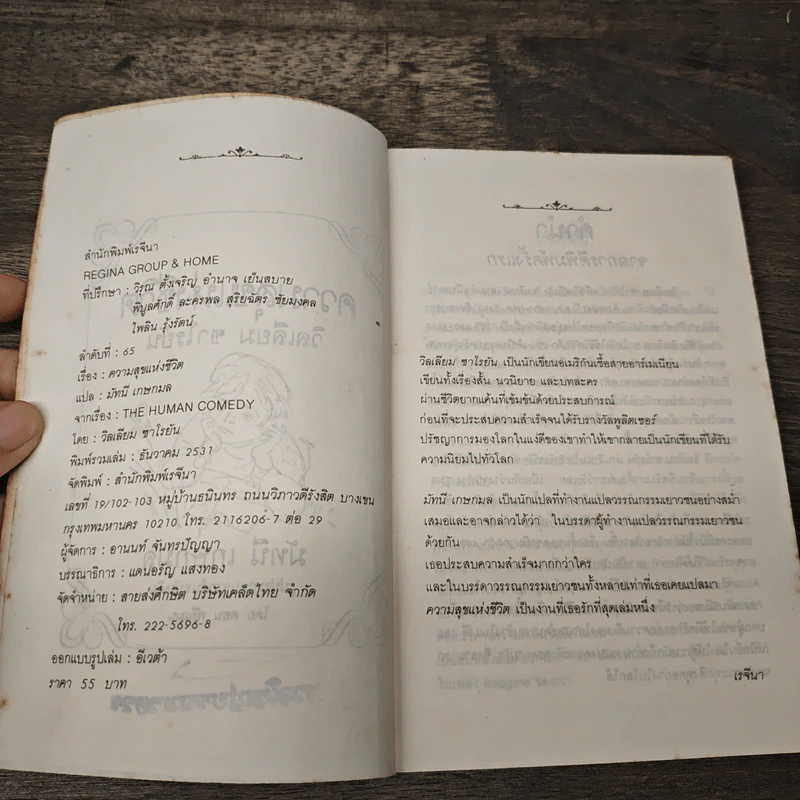 สำนักพิมพ์เรจีนา
REGINA GROUP & HOME
ที่ปรึกษา : วิรุณ ตั้งเจริญ อำนาจ เย็นสบาย
พิบูลศักดิ์ ละครพล สุริยฉัตร ชัยมงคล
ไพลิน รุ้งรัตน์
ลำดับที่ : 65
เรื่อง : ความสุขแห่งชีวิต
แปล : มัทนี เกษกมล
จากเรื่อง : THE HUMAN COMEDY
โดย : วิลเลียม ซาโรยัน
พิมพ์รวมเล่ม : ธันวาคม 2531
จัดพิมพ์ : สำนักพิมพ์เรจีนา
เลขที่ 19/102-103 หมู่บ้านธนินทร ถนนวิภาวดีรังสิต บางเขน
กรุงเทพมหานคร 10210 โทร. 2116206-7 ต่อ 29
ผู้จัดการ : อานนท์ จันทรปัญญา
บรรณาธิการ : แดนอรัญ แสงทอง
จัดจำหน่าย : สายส่งศึกษิต บริษัทเคล็ดไทย จำกัด
โทร. 222-5696-8
ออกแบบรูปเล่ม : อีเวต้า
ราคา 55 บาท
วิลเลียม ซาโรยัน เป็นนักเขียนอเมริกันเชื้อสายอาร์เมเนียน
เขียนทั้งเรื่องสั้น นวนิยาย และบทละคร
ผ่านชีวิตยากแค้นที่เข้มข้นด้วยประสบการณ์
ก่อนที่จะประสบความสำเร็จจนได้รับรางวัลพูลิตเซอร์
ปรัชญาการมองโลกในแง่ดีของเขาทำให้เขากลายเป็นนักเขียนที่ได้รับ
ความนิยมไปทั่วโลก
มัทนี เกษกมล เป็นนักแปลที่ทำงานแปลวรรณกรรมเยาวชนอย่างสม่ำ
เสมอและอาจกล่าวได้ว่า ในบรรดาผู้ทำงานแปลวรรณกรรมเยาวชน
ด้วยกัน
เธอประสบความสำเร็จมากกว่าใคร
และในบรรดาวรรณกรรมเยาวชนทั้งหลายเท่าที่เธอเคยแปลมา
ความสุขแห่งชีวิต เป็นงานที่เธอรักที่สุดเล่มหนึ่ง
เรจีนา